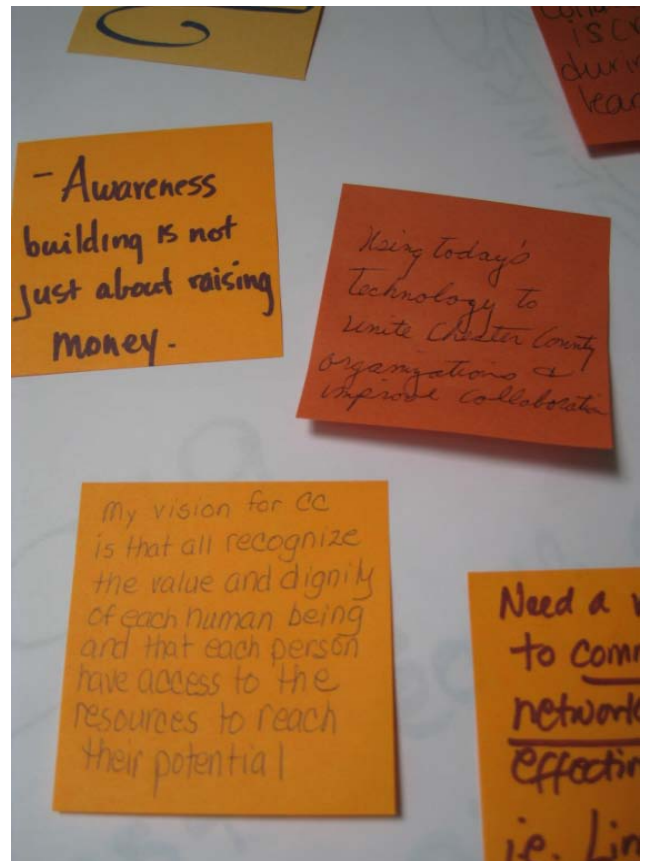 is
during
- Awareness
building is not
just about raising
money.
Using today's
Technology to
Unite Chester County
organizations &
improve collaboration
My vision for CC
is that all recognize
the value and dignity
of each human being
and that each person
have access to the
resources to reach
their potential
Need a
to
network
ie.